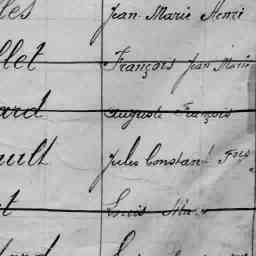 les Jean Marie Henri
llet François Jean Marie
ard Auguste François
ault Jules Constant
t Louis
ard